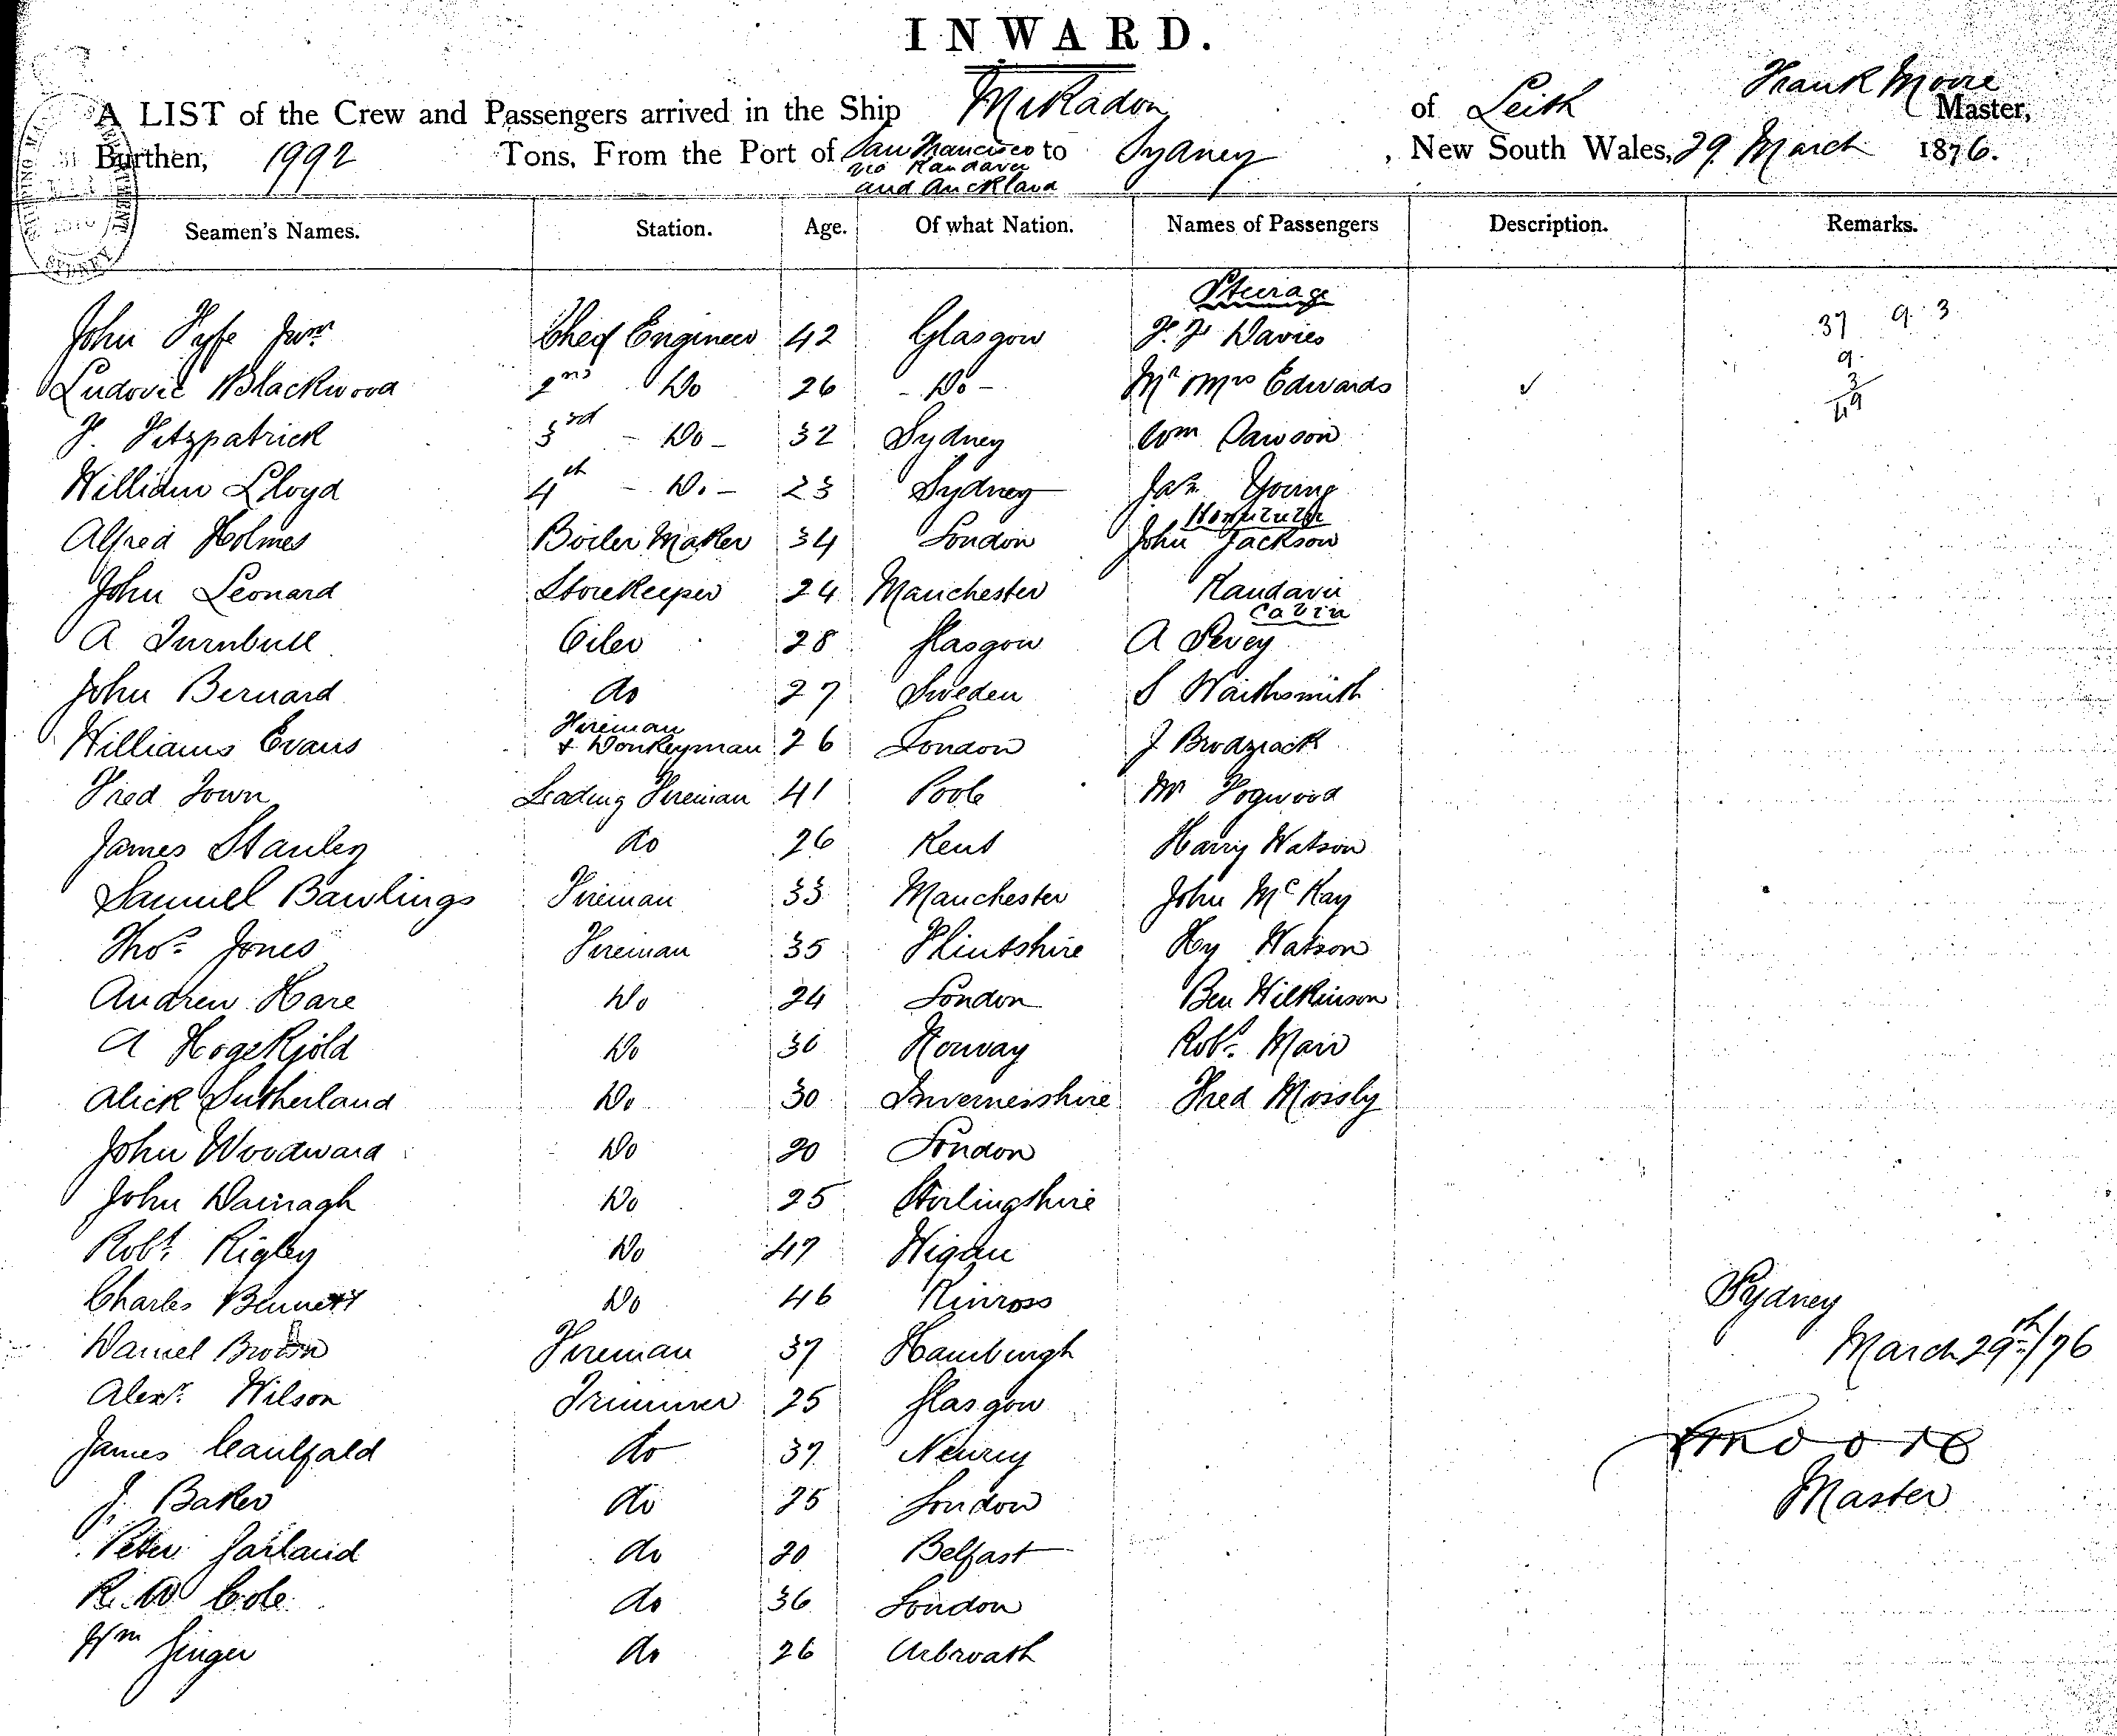 INWARD.
Frank Moore
A LIST of the Crew and Passengers arrived in the Ship Mikadon of Leith Master,
Burthen, 1992 Tons, From the Port of San Francisco to Sydney, New South Wales, 29 March 1876.
via Kandavu
and Auckland
Seamen's Names. Station. Age. Of what Nation. Names of Passengers Description. Remarks.
Steerage
John Fyfe Junr Chef Engineer 42 Glasgow F. F. Davies 37 9 3
9
Ludovic Blackwood 2nd Do 26 - Do - Mr Mrs Edwards ✓ 3
49
F. Fitzpatrick 3rd - Do - 32 Sydney Wm Dawson
William Lloyd 4th - Do - 23 Sydney Jas Young
Honolulu
Alfred Holmes Boiler Maker 34 London John Jackson
John Leonard Storekeeper 24 Manchester Kandavu
Cabin
A Turnbull Oiler 28 Glasgow A Pevey
John Bernard do 27 Sweden S Waithsmith
Fireman
Williams Evans & Donkeyman 26 London J Brodziack
Fred Town Leading Fireman 41 Poole Mr Hogwood
James Stanley do 26 Kent Harry Watson
Samuel Bawlings Fireman 33 Manchester John McKay
Thos. Jones Fireman 35 Flintshire Hy Watson
Andrew Hare Do 24 London Ben Wilkinson
A Hogekjold Do 36 Norway Robt. Mair
Alick Sutherland Do 30 Invernesshire Fred Mossly
John Woodward Do 20 London
John Darragh Do 25 Stirlingshire
Robt. Rigley Do 47 Wigan
Charles Bennett Do 46 Kinross
Sydney
Daniel Brown Fireman 37 Hamburgh
March 29th/76
Alexr. Wilson Trimmer 25 Glasgow
James Caulfald do 37 Newry
FMoore
J. Baker do 25 London
Master
Peter Garland do 20 Belfast
R. W Cole do 36 London
Wm Ginger do 26 Arbroath